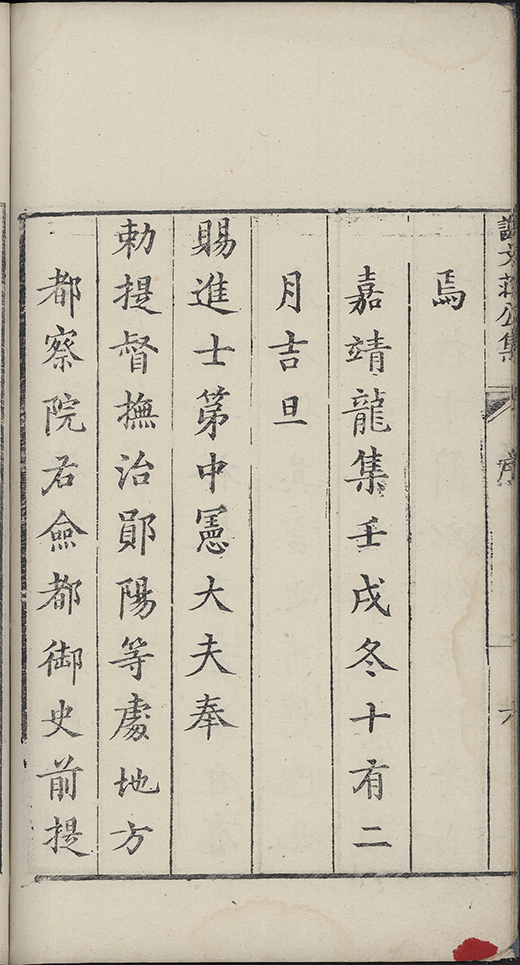 文莊公集
序
焉
嘉靖龍集壬戌冬十有二
月吉旦
賜進士第中憲大夫奉
勑提督撫治鄖陽等處地方
都察院右僉都御史前提